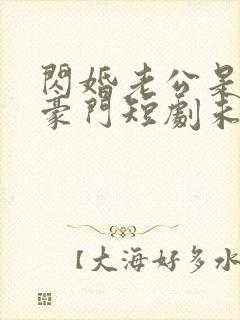 閃婚老公是
豪門短劇未
【大海好多水